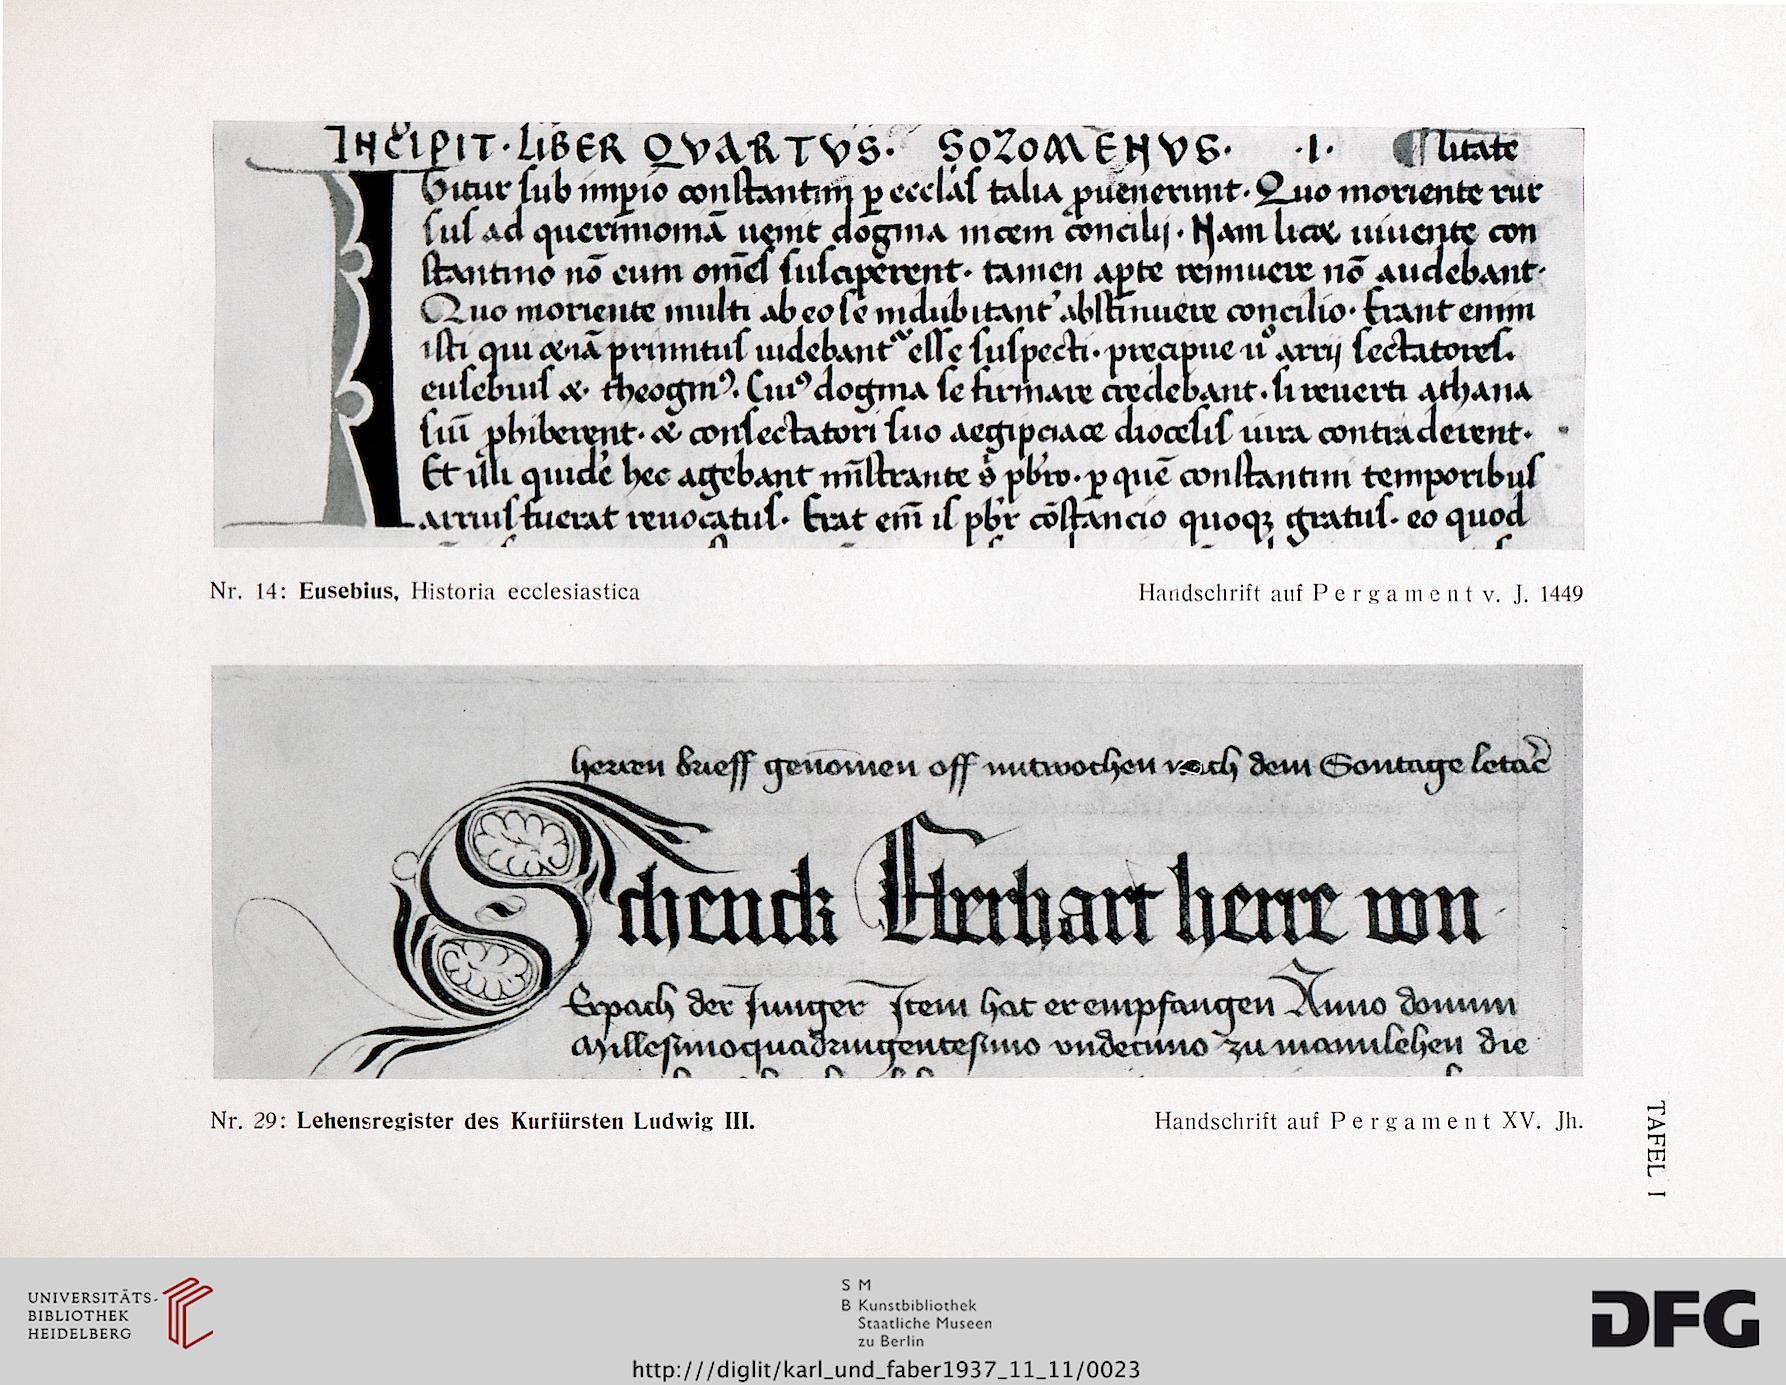 INCIPIT · LIBER QVARTVS · SOZOMENVS · I · litate
Gitur sub impio constantini p ecclas talia puenerunt · Quo moriente rur
sus ad querimoniā uenit dogma niceni concilii · Nam licæ uiuente con
stantino nō eum oms susciperent · tamen apte rennuere nō audebant ·
Quo moriente multi ab eo se indubitant abstinuere concilio · Erant enim
isti qui & iā primitus uidebant esse suspecti · precipue arrij sectatores ·
eusebius & theogni⁹ · Cui⁹ dogma se firmare credebant · si reuerti athana
siū phiberent · & consectatori suo aegipciace diocesis uira contraderent ·
Et illi quidē hec agebant mīstrante pbro · p quē constantini temporibus
arrius fuerat reuocatus · Erat enī is pbr cōstancio quoqꝫ gratus · eo quod
Nr. 14: Eusebius, Historia ecclesiastica Handschrift auf Pergament v. J. 1449
herren brieff genomen off mitwochen nach dem Sontage letare
Schenck Eberhart herre von
Erpach der Junger Item hat er empfangen Anno domini
Millesimoquadringentesimo vndecimo zu mannlehen die
Nr. 29: Lehensregister des Kurfürsten Ludwig III. Handschrift auf Pergament XV. Jh.
TAFEL I
UNIVERSITÄTS-
BIBLIOTHEK
HEIDELBERG
S M
B Kunstbibliothek
Staatliche Museen
zu Berlin
DFG
http:///diglit/karl_und_faber1937_11_11/0023